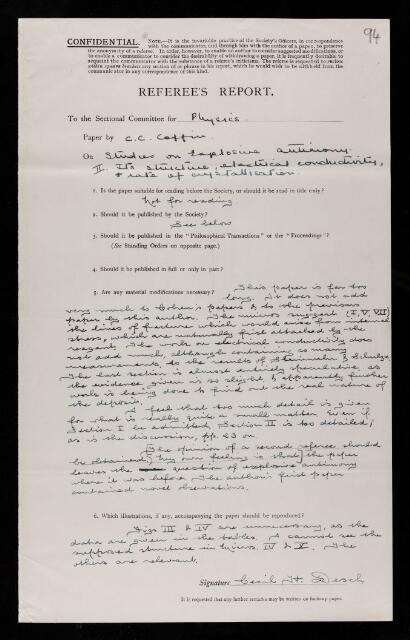 94
CONFIDENTIAL. NOTE.—It is the invariable practice of the Society's Officers, in correspondence
with the communicator, and through him with the author of a paper, to preserve
the anonymity of a referee. In order, however, to enable an author to consider suggested modifications, or
to enable a communicator to consider the desirability of withdrawing a paper, it is frequently desirable to
acquaint the communicator with the substance of a referee's criticisms. The referee is requested to
any section of or phrase in his report, which he would wish to be withheld from the
communicator in any correspondence of this kind.
REFEREE'S REPORT.
To the Sectional Committee for Physics
Paper by C. C. Coffin
On Studies on explosive antimony.
II. Its structure, electrical conductivity,
& rate of crystallisation.
1. Is the paper suitable for reading before the Society, or should it be read in title only?
Not for reading
2. Should it be published by the Society?
See below
3. Should it be published in the "Philosophical Transactions" or the "Proceedings"?
(See Standing Orders on opposite page.)
4. Should it be published in full or only in part?
5. Are any material modifications necessary? This paper is far too
long. It does not add
very much to Cohen's papers & to the previous
paper by this author. The mirrors suggest (I, V, VII)
the lines of fracture which would arise from internal
stress, which are naturally first attacked by the
reagent. The work on electrical conductivity does
not add much, although containing so many
measurements, to the results of Steinwehr & Schulze.
The last section is almost entirely speculative, as
the evidence given is so slight & apparently further
work is being done to find out the real nature of
the deposit.
I feel that too much detail is given
for what is really quite a small matter. Even if
Section I be admitted, Section II is too detailed,
as is the discussion, pp. 23 on.
The opinion of a second referee should
be obtained, my own feeling is that the paper
leaves the question of explosive antimony
where it was before. The author's first paper
contained novel observations.
6. Which illustrations, if any, accompanying the paper should be reproduced?
Figs III & IV are unnecessary, as the
data are given in the tables. I cannot see the
supposed structure in IV & X. The
others are relevant.
Signature Cecil H. Desch
It is requested that any further remarks may be written on foolscap paper.